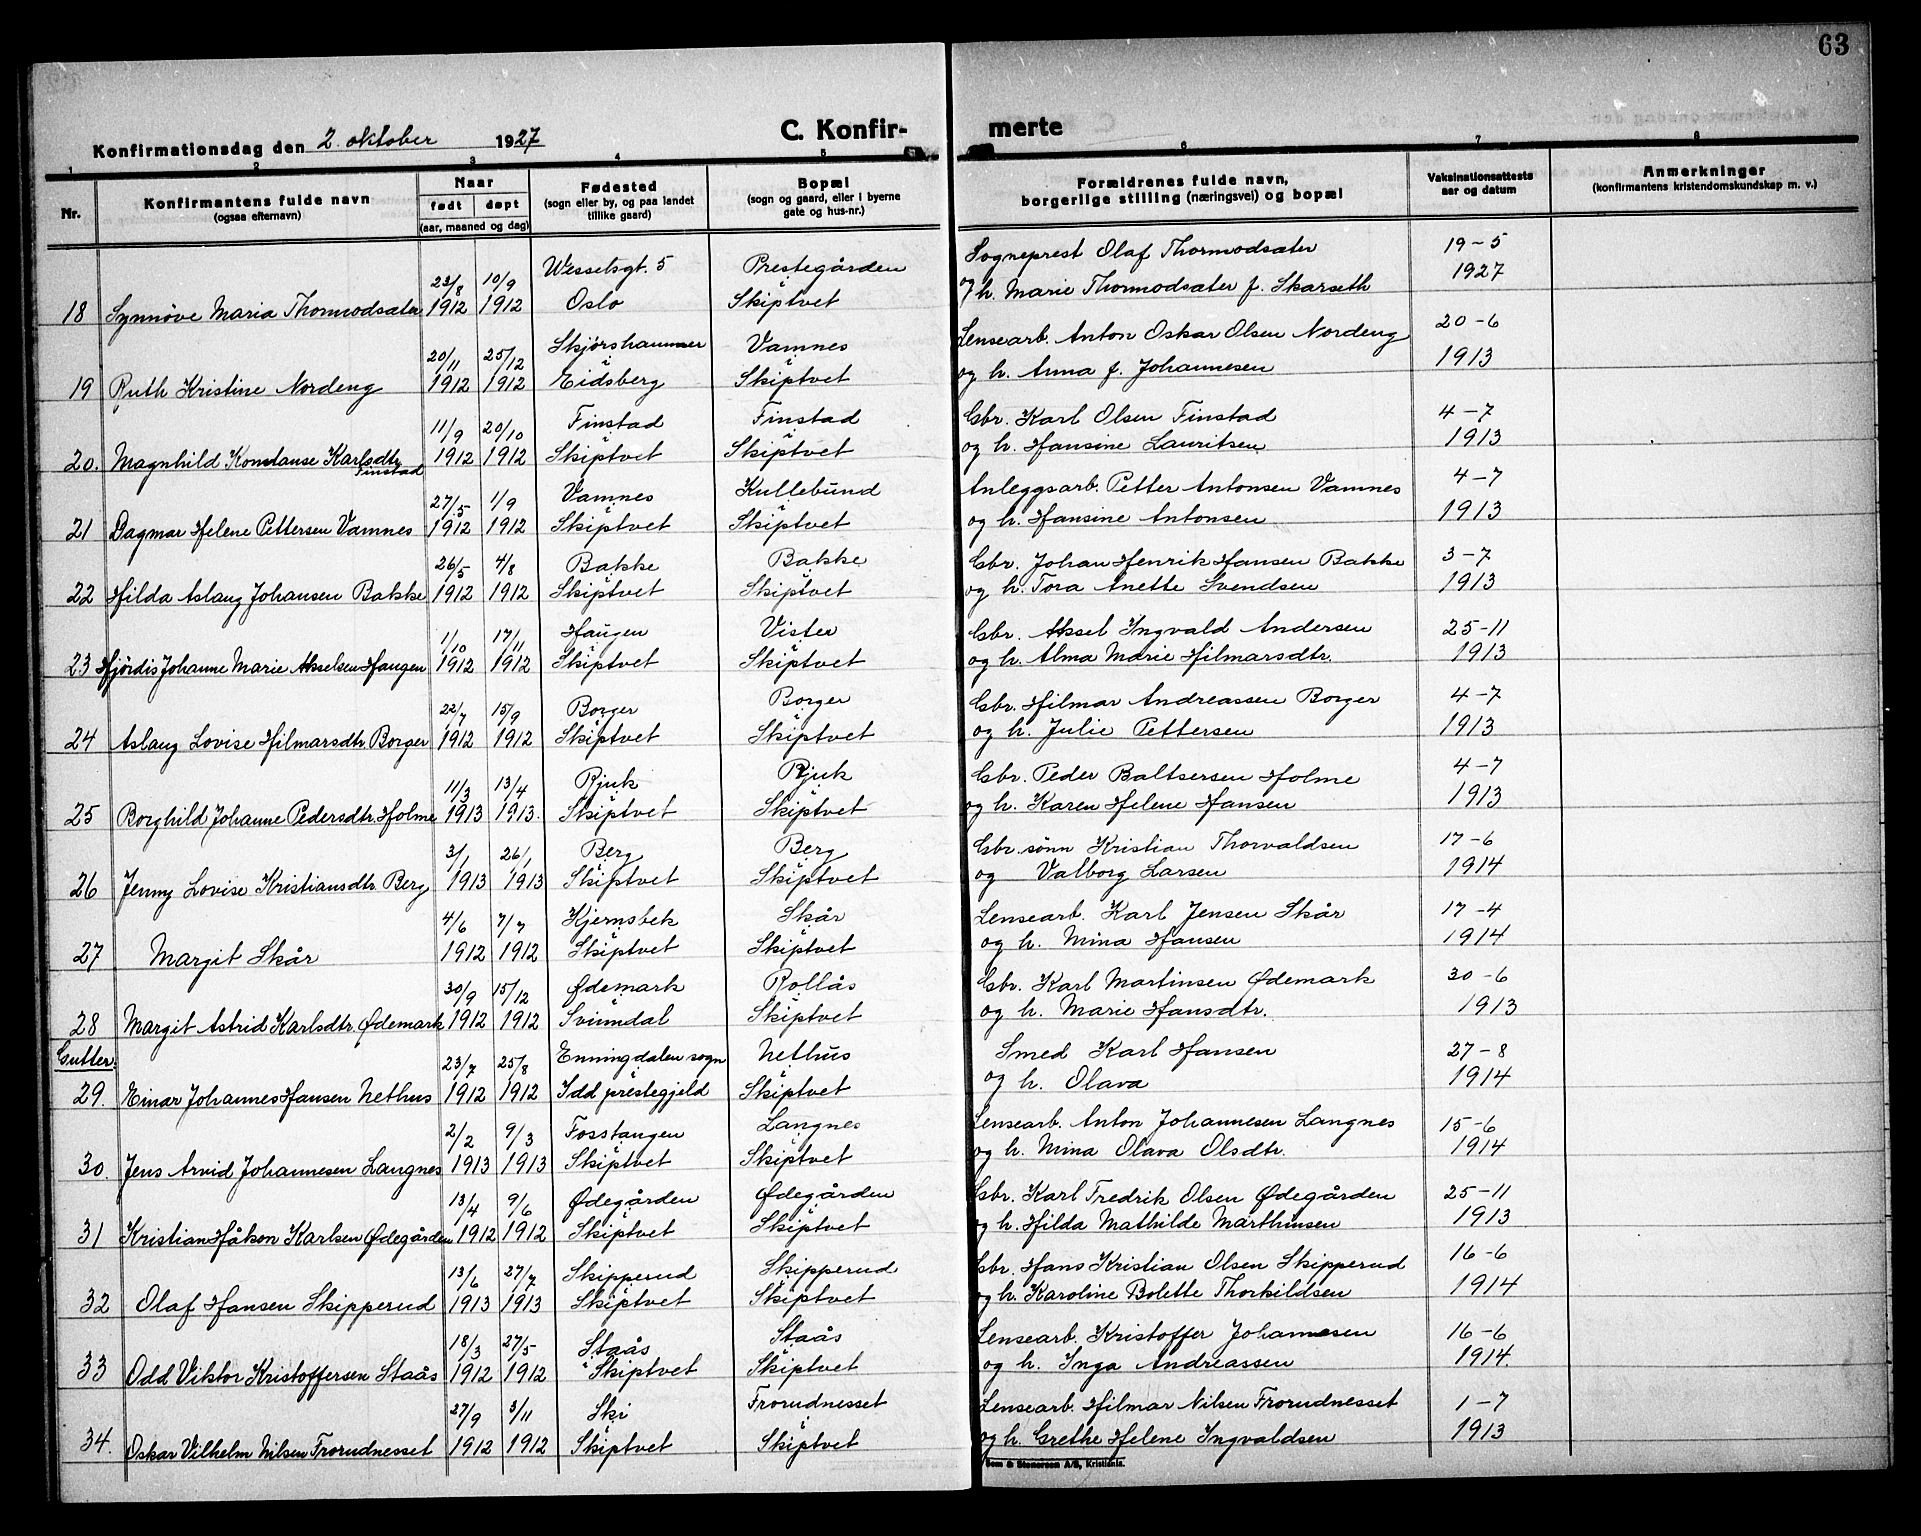 63
Konfirmationsdag den 2. oktober 1927
C. Konfir-
merte
1 2 3 4 5 6 7 8
Nr.
Konfirmantens fulde navn
(ogsaa efternavn)
Naar
født døpt
(aar, maaned og dag)
Fødested
(sogn eller by, og paa landet
tillike gaard)
Bopæl
(sogn og gaard, eller i byerne
gate og hus-nr.)
Forældrenes fulde navn,
borgerlige stilling (næringsvei) og bopæl
Vaksinationsattests
aar og datum
Anmerkninger
(konfirmantens kristendomskundskap m. v.)
23/8 10/9 Wesselsgt. 5 Prestegården Sogneprest Olaf Thormodsæter 19-5
18 Synnøve Maria Thormodsæter 1912 1912 Oslo Skiptvet og h. Marie Thormodsæter f. Skarseth 1927
20/11 25/12 Skjørshammer Vamnes Lensearb. Anton Oskar Olsen Nordeng 20-6
19 Ruth Kristine Nordeng 1912 1912 Eidsberg Skiptvet og h. Anna f. Johannesen 1913
11/9 20/10 Finstad Finstad Gbr. Karl Olsen Finstad 4-7
20. Magnhild Konstanse Karlsdtr. 1912 1912 Skiptvet Skiptvet og h. Hansine Lauritsen 1913
Finstad
27/5 1/9 Vamnes Kullebund Anleggsarb. Petter Antonsen Vamnes 4-7
21 Dagmar Helene Pettersen Vamnes 1912 1912 Skiptvet Skiptvet og h. Hansine Antonsen 1913
26/5 4/8 Bakke Bakke Gbr. Johan Henrik Hansen Bakke 3-7
22 Hilda Aslaug Johansen Bakke 1912 1912 Skiptvet Skiptvet og h. Tora Anette Svendsen 1913
1/10 17/11 Haugen Vister Gbr. Aksel Ingvald Andersen 25-11
23 Hjørdis Johanne Marie Akselsen Haugen 1912 1912 Skiptvet Skiptvet og h. Alma Marie Hilmarsdtr. 1913
22/7 15/9 Borger Borger Gbr. Hilmar Andreassen Borger 4-7
24 Aslaug Lovise Hilmarsdtr. Borger 1912 1912 Skiptvet Skiptvet og h. Julie Pettersen 1913
11/3 13/4 Rjuk Rjuk Gbr. Peder Baltsersen Holme 4-7
25 Borghild Johanne Pedersdtr. Holme 1913 1913. Skiptvet Skiptvet og h. Karen Helene Hansen 1913
3/1 26/1 Berg Berg Gbr. sønn Kristian Thorvaldsen 17-6
26 Jenny Lovise Kristiansdtr. Berg 1913 1913 Skiptvet Skiptvet og Valborg Larsen 1914
4/6 7/7 Kjernsbek Skår Lensearb. Karl Jensen Skår 17-4
27 Margit Skår 1912 1912 Skiptvet Skiptvet og h. Mina Hansen 1914
30/9 15/12 Ødemark Rollås Gbr. Karl Martinsen Ødemark 30-6
28 Margit Astrid Karlsdtr. Ødemark 1912 1912 Svinndal Skiptvet og h. Marie Hansdtr. 1913
Gutter:
23/7 25/8 Enningdalen sogn Nethus Smed Karl Hansen 27-8
29. Einar Johannes Hansen Nethus 1912 1912 Idd prestegjeld Skiptvet og h. Olava 1914
2/2 9/3 Fosstangen Langnes Lensearb. Anton Johannesen Langnes 15-6
30. Jens Arvid Johannesen Langnes 1913 1913 Skiptvet Skiptvet og h. Mina Olava Olsdtr. 1914
13/4 9/6 Ødegården Ødegården Gbr. Karl Fredrik Olsen Ødegården 25-11
31 Kristian Håkon Karlsen Ødegården 1912 1912 Skiptvet Skiptvet og h. Hilda Mathilde Marthinsen 1913
13/6 27/7 Skipperud Skipperud Gbr. Hans Kristian Olsen Skipperud 16-6
32 Olaf Hansen Skipperud 1913 1913 Skiptvet Skiptvet og h. Karoline Bolette Thorkildsen 1914
18/3 27/5 Staås Staås Lensearb. Kristoffer Johannesen 16-6
33 Odd Viktor Kristoffersen Staås 1912 1912 Skiptvet Skiptvet og h. Inga Andreassen 1914.
27/9 3/11 Ski Frorudnesset Lensearb. Hilmar Nilsen Frorudnesset 1-7
34. Oskar Vilhelm Nilsen Frorudnesset 1912 1912 Skiptvet Skiptvet og h. Grethe Helene Ingvaldsen 1913
Sem & Stenersen A/S, Kristiania.